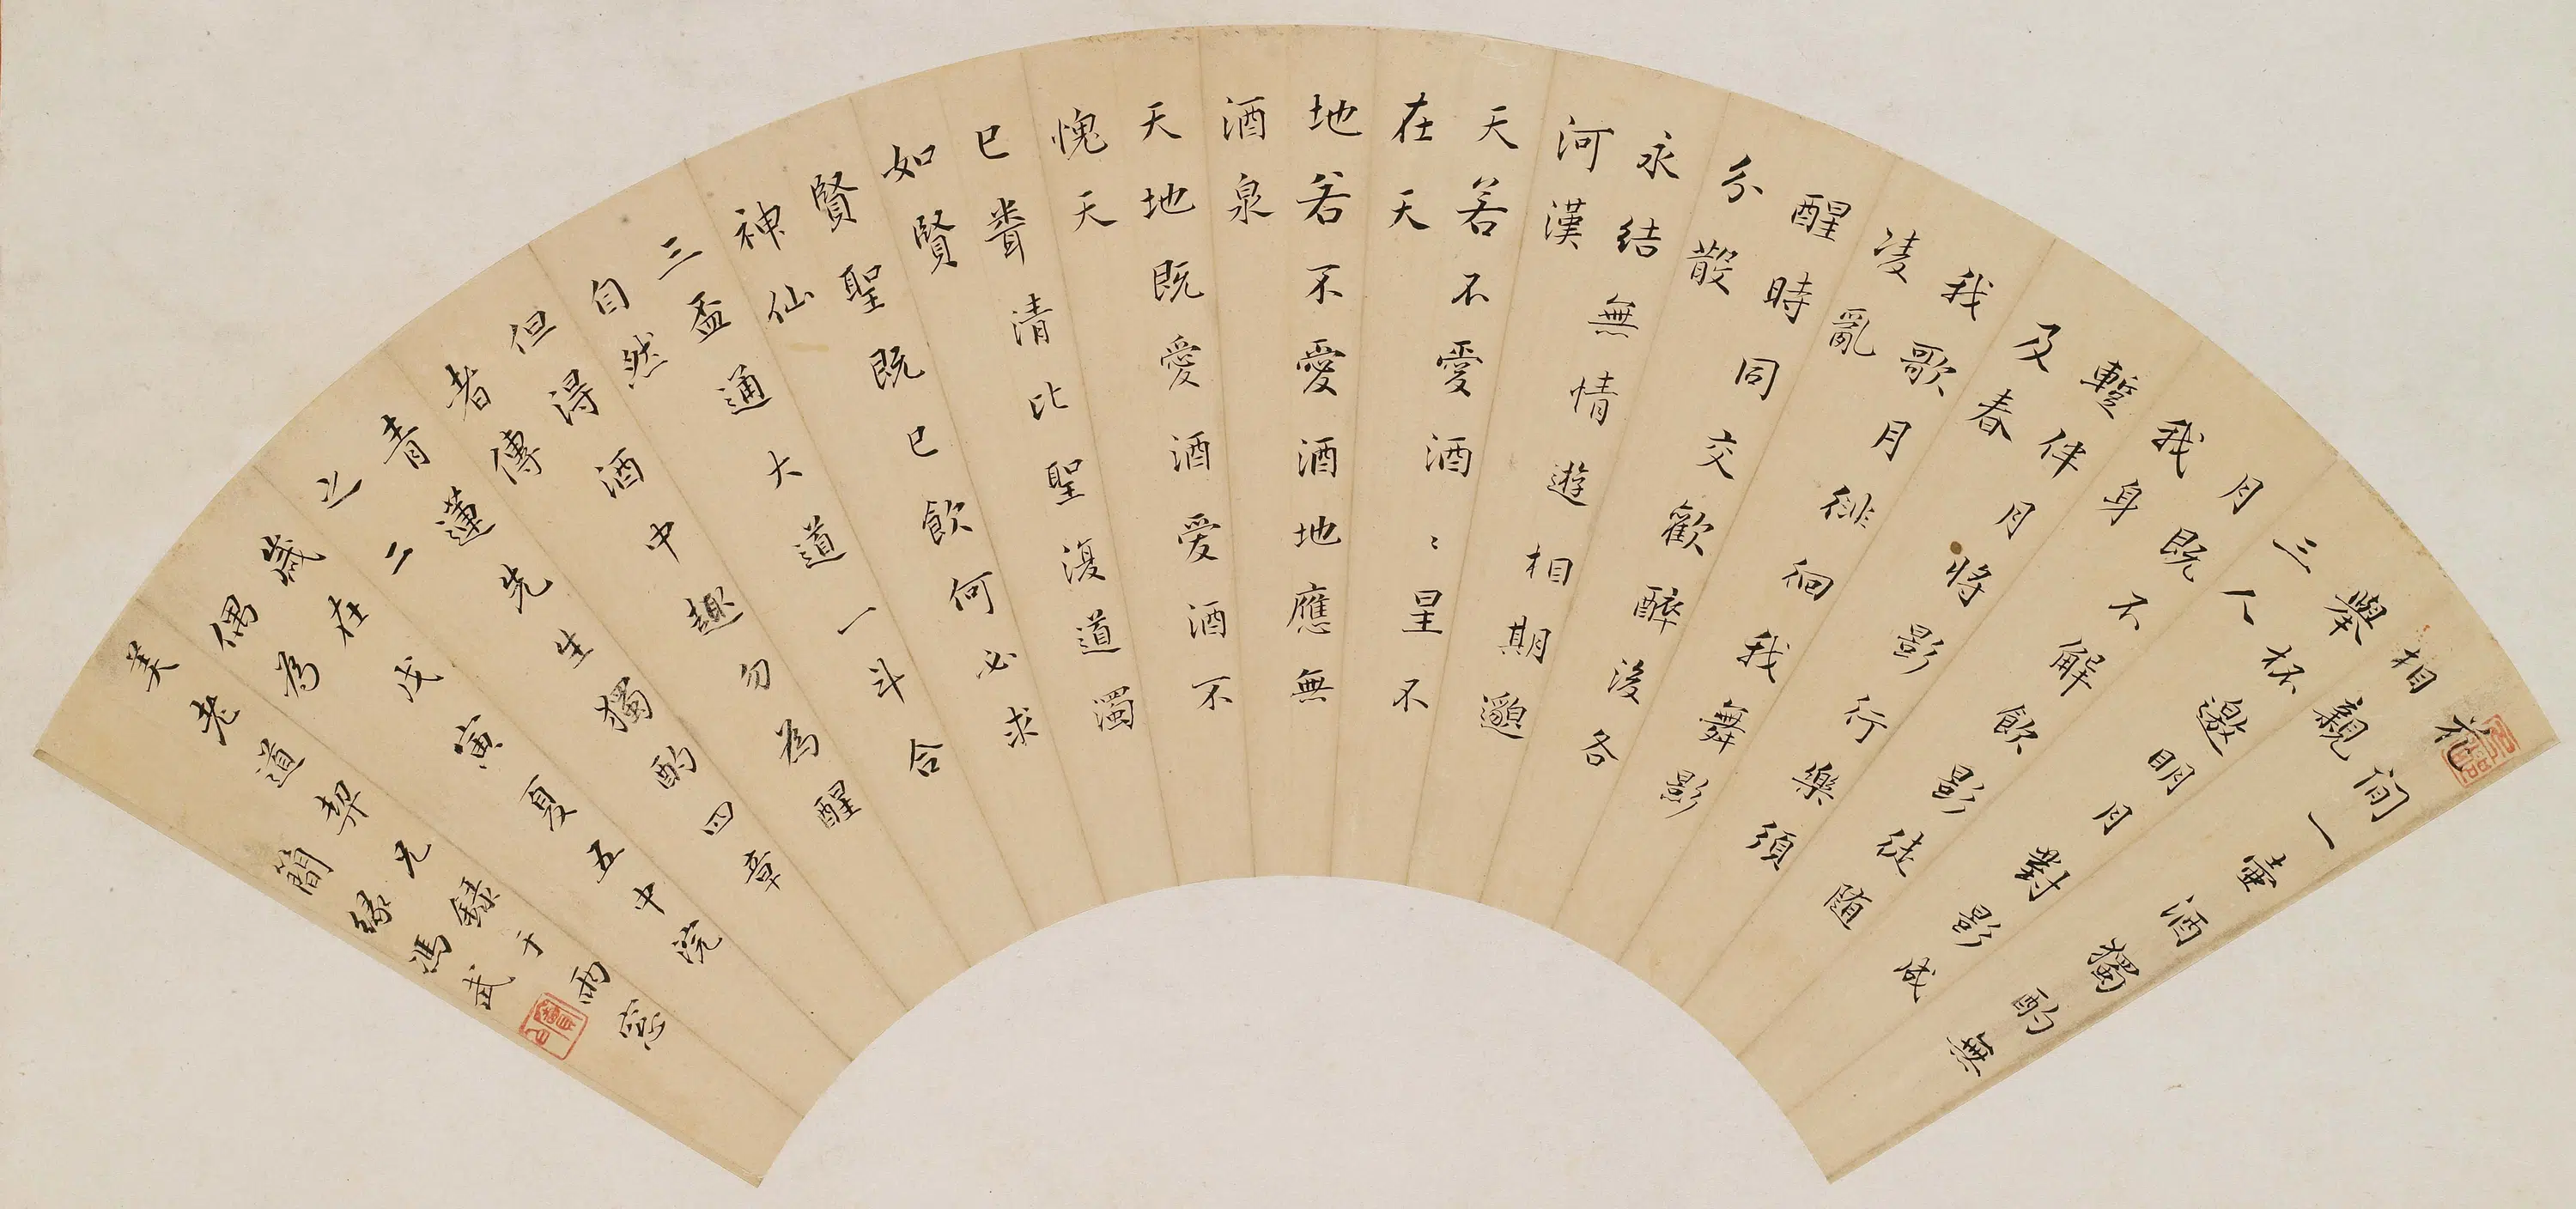 花間一壺酒獨酌無
相親
舉杯邀明月對影成
三人
月既不解飲影徒隨
我身
暫伴月將影行樂須
及春
我歌月徘徊我舞影
凌亂
醒時同交歡醉後各
分散
永結無情遊相期邈
河漢
天若不愛酒〻星不
在天
地若不愛酒地應無
酒泉
天地既愛酒愛酒不
愧天
已聞清比聖復道濁
如賢
賢聖既已飲何必求
神仙
三盃通大道一斗合
自然
但得酒中趣勿為醒
者傳
青蓮先生獨酌四章
之二
歲在戊寅夏五中浣
偶為
美老道契兄錄于雨窓
簡緣馮武